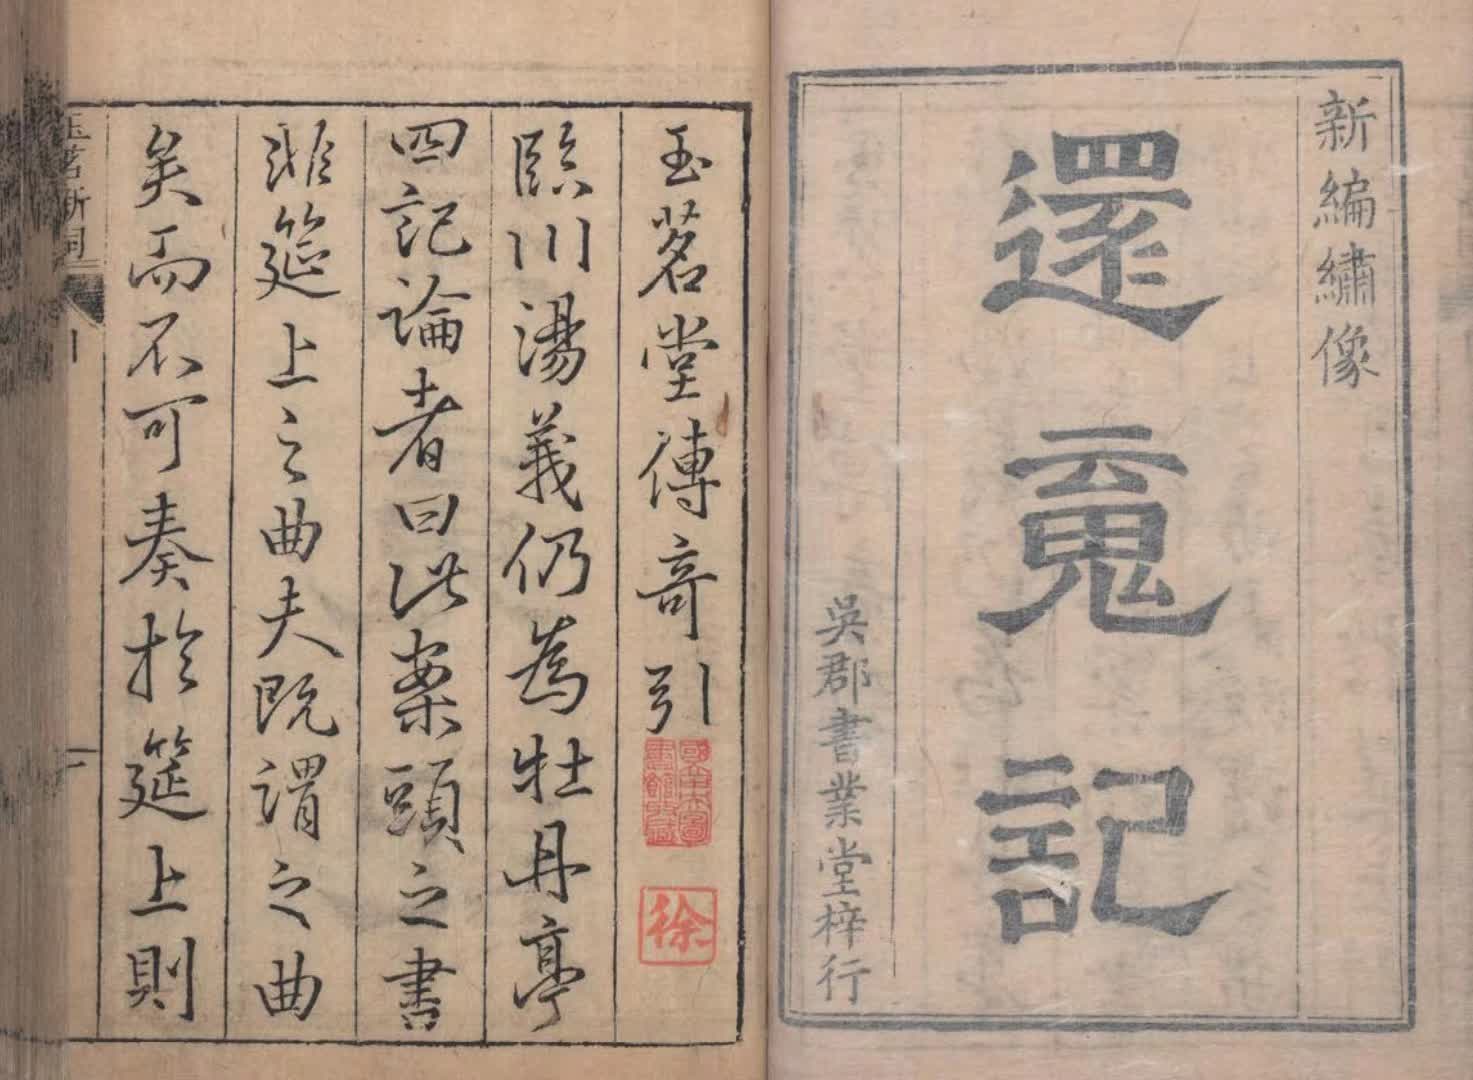 新編繡像
還䰟記
吳郡書業堂梓行
玉茗堂傳奇引
徐
臨川湯義仍為牡丹亭
四記論者曰此案頭之書
非筵上之曲夫既謂之曲
矣而不可奏於筵上則
玉茗新詞